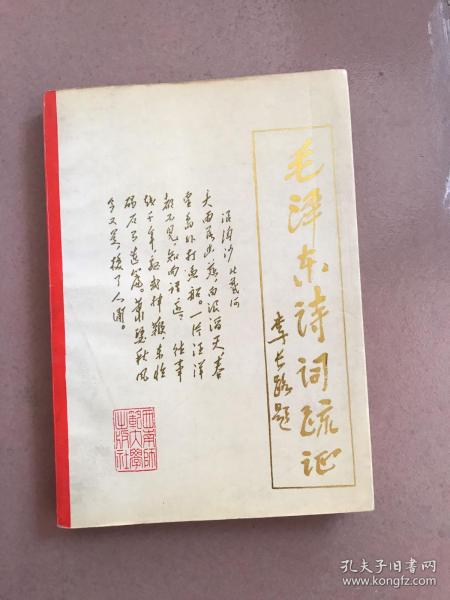 毛泽东诗词疏证
李长路题
浪淘沙 北戴河
大雨落幽燕,白浪滔天秦
皇岛外打渔船。一片汪洋
都不见,知向谁边 往事
越千年,魏武挥鞭,东临
碣石有遗篇。萧瑟秋风
今又是,换了人间。
西南師
範大學
出版社
孔夫子旧书网
www.kongfz.com